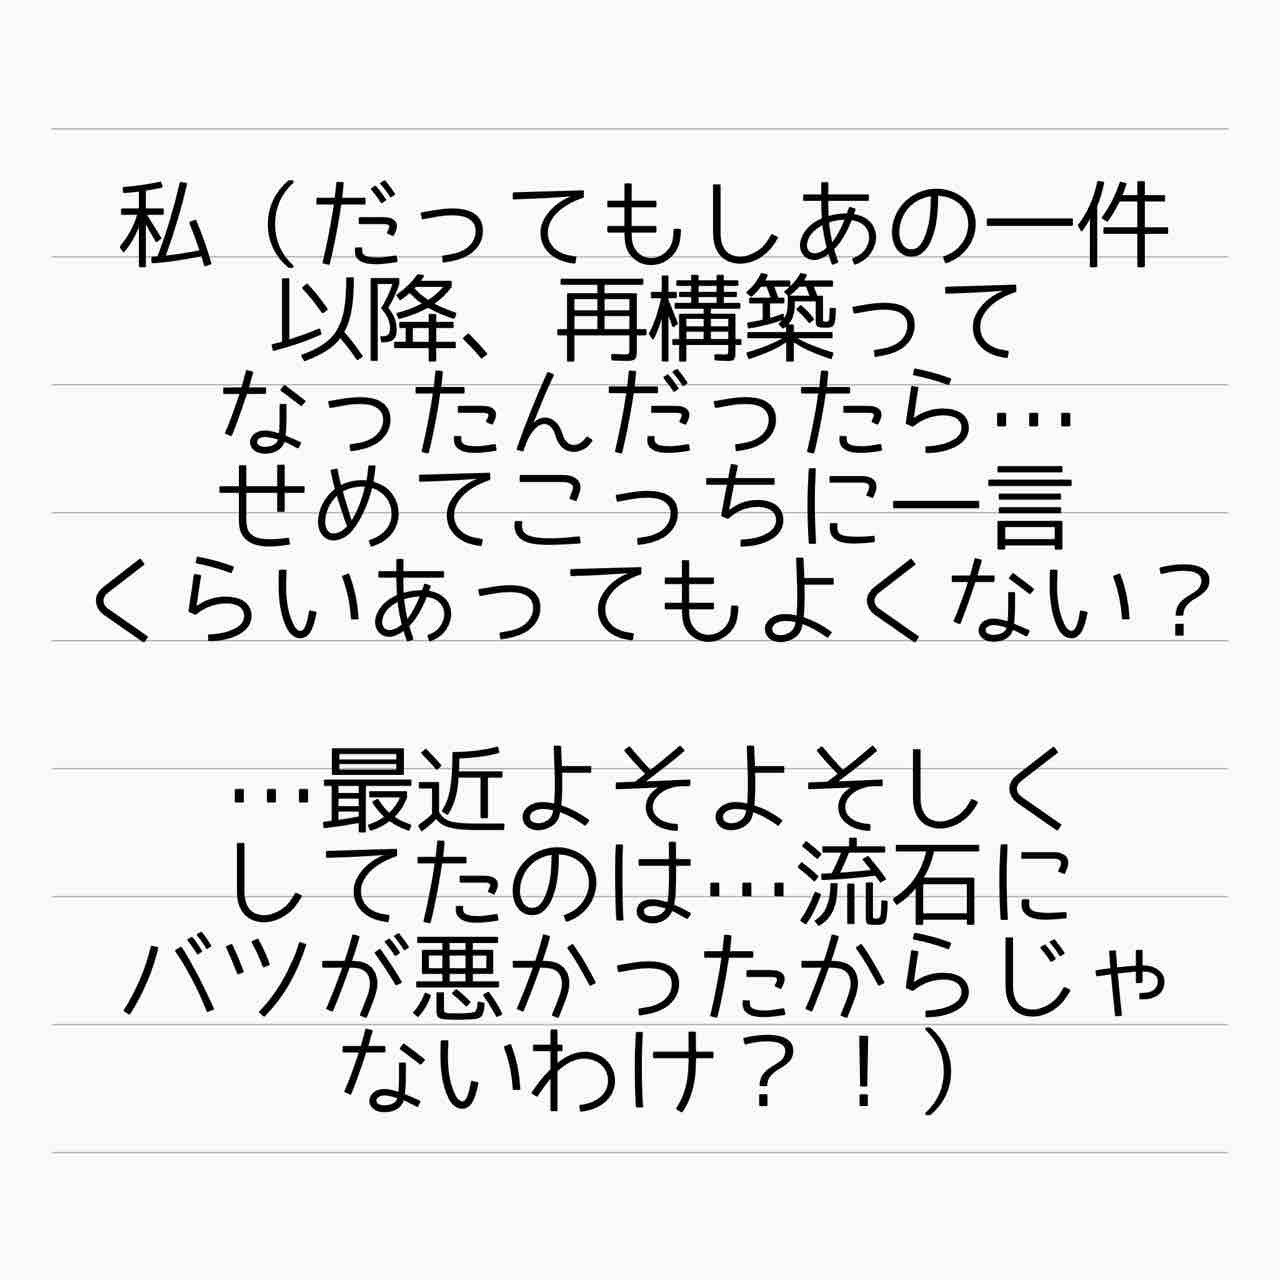 私（だってもしあの一件
以降、再構築って
なったんだったら…
せめてこっちに一言
くらいあってもよくない？
…最近よそよそしく
してたのは…流石に
バツが悪かったからじゃ
ないわけ？！）